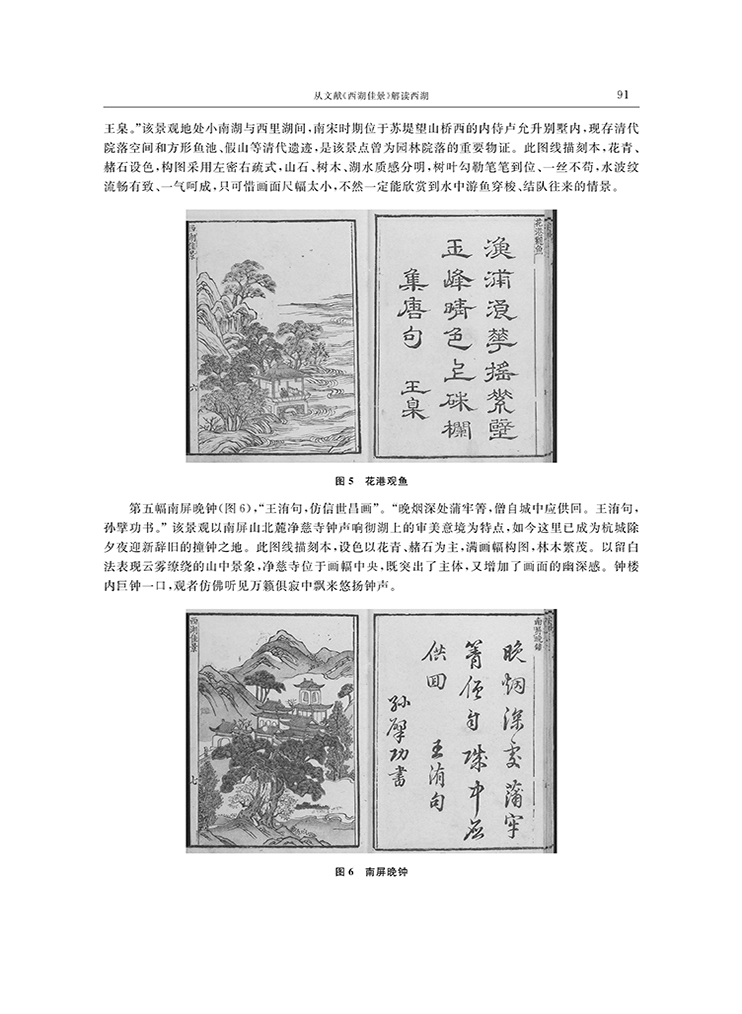 从文献《西湖佳景》解读西湖
91
王臬。”该景观地处小南湖与西里湖间，南宋时期位于苏堤望山桥西的内侍卢允升别墅内，现存清代
院落空间和方形鱼池、假山等清代遗迹，是该景点曾为园林院落的重要物证。此图线描刻本，花青、
赭石设色，构图采用左密右疏式，山石、树木、湖水质感分明，树叶勾勒笔笔到位、一丝不苟，水波纹
流畅有致、一气呵成，只可惜画面尺幅太小，不然一定能欣赏到水中游鱼穿梭、结队往来的情景。
花港观鱼
漁浦浪華摇素壁
玉峰晴色上硃欄
集唐句 王臬
西湖佳景
六
图5 花港观鱼
第五幅南屏晚钟（图6），“王洧句，仿信世昌画”。“晚烟深处蒲牢箐，僧自城中应供回。王洧句，
孙擘功书。”该景观以南屏山北麓净慈寺钟声响彻湖上的审美意境为特点，如今这里已成为杭城除
夕夜迎新辞旧的撞钟之地。此图线描刻本，设色以花青、赭石为主，满画幅构图，林木繁茂。以留白
法表现云雾缭绕的山中景象，净慈寺位于画幅中央，既突出了主体，又增加了画面的幽深感。钟楼
内巨钟一口，观者仿佛听见万籁俱寂中飘来悠扬钟声。
南屏晚鐘
晚烟深處蒲牢
箐僧自城中应
供回 王洧句
孙擘功書
西湖佳景
七
图6 南屏晚钟